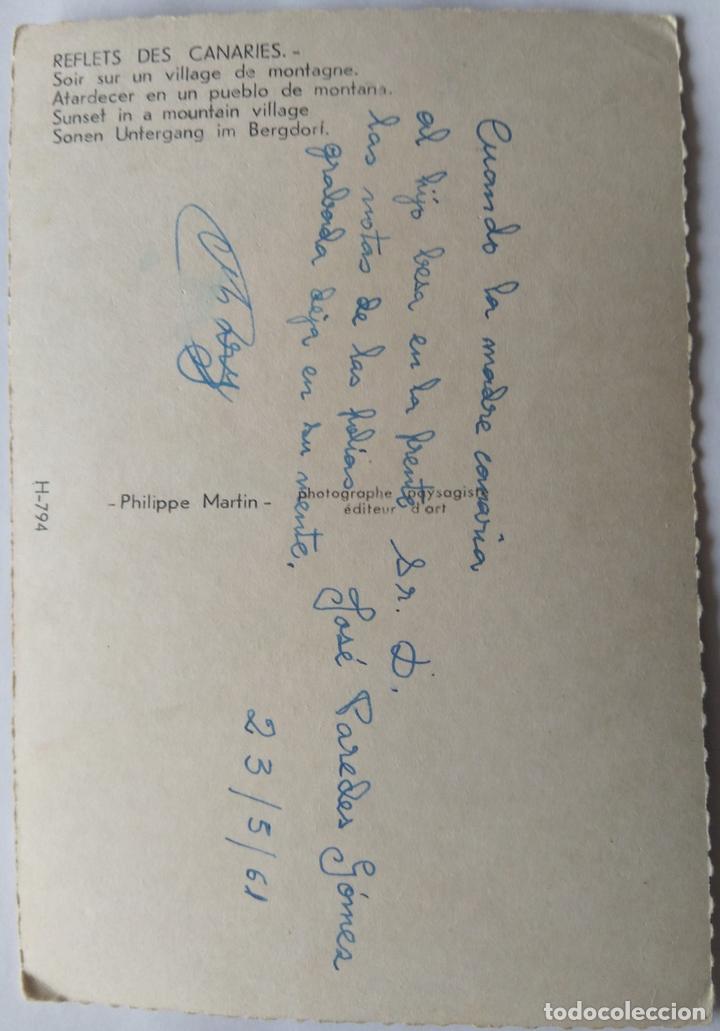 REFLETS DES CANARIES. -
Soir sur un village de montagne.
Atardecer en un pueblo de montana.
Sunset in a mountain village
Sonen Untergang im Bergdorf.
Cuando la madre canaria
al hijo besa en la frente
las notas de las folias
grabada deja en su mente.
Sr. D.
José Paredes Gómez
23/5/61
- Philippe Martin - photographe paysagiste
éditeur d'art
H-794
todocoleccion